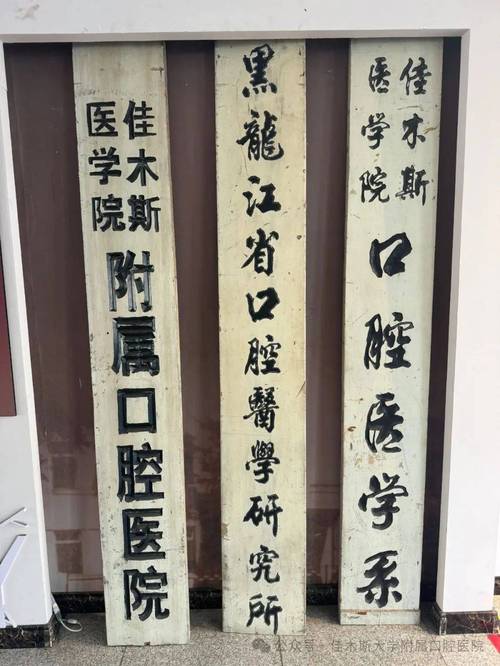 佳木斯
医学院
附属口腔医院
黑龍江省口腔醫學研究所
佳木斯
医学院
口腔医学系
公众号 · 佳木斯大学附属口腔医院